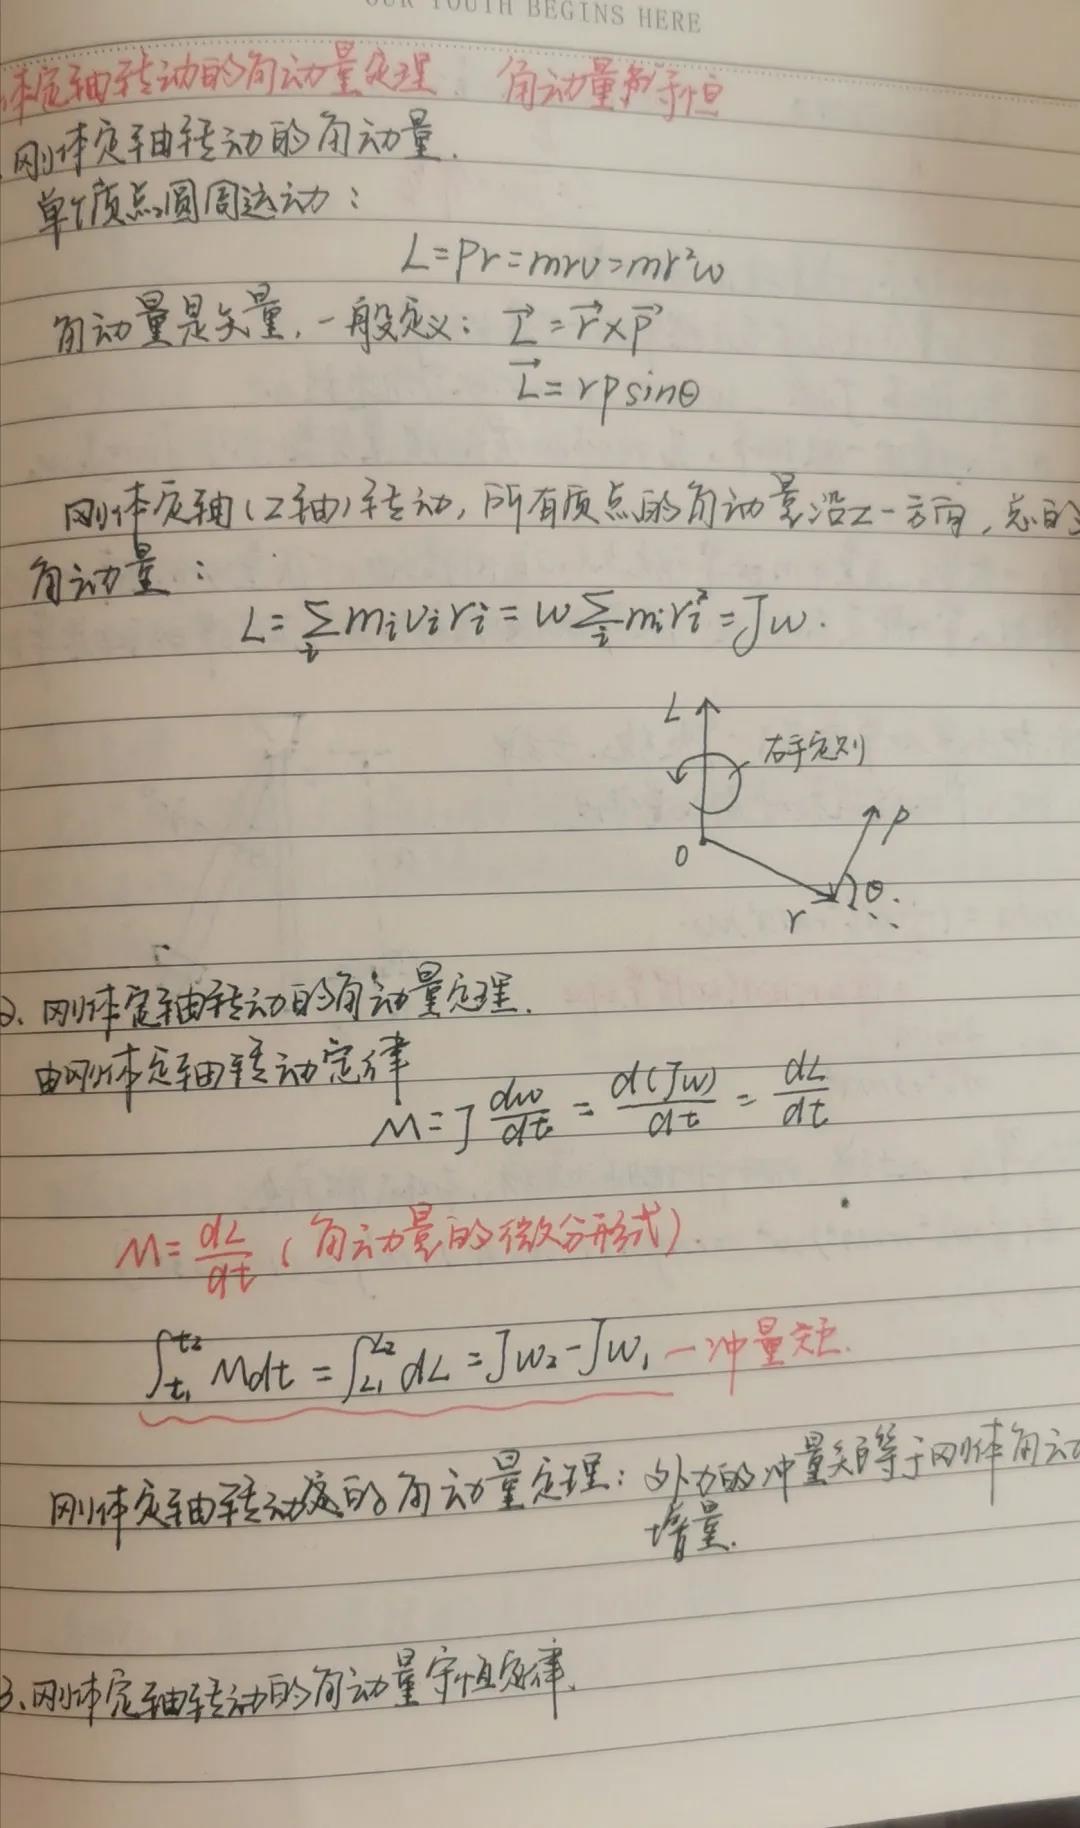 OUR YOUTH BEGINS HERE
体定轴转动的角动量定理、角动量守恒
刚体定轴转动的角动量.
单个质点圆周运动:
L=Pr=mrv=mr²ω
角动量是矢量,一般定义: L⃗=r⃗×p⃗
L⃗=rpsinθ
刚体定轴(Z轴)转动,所有质点的角动量沿这一方向,总的
角动量:
L=∑ᵢmᵢvᵢrᵢ=ω∑ᵢmᵢrᵢ²=Jω.
L
右手定则
O
P
θ
r
2、刚体定轴转动的角动量定理.
由刚体定轴转动定律
M=J dω/dt = d(Jω)/dt = dL/dt
M=dL/dt (角动量的微分形式).
∫_{t₁}^{t₂} Mdt = ∫_{L₁}^{L₂} dL = Jω₂-Jω₁ —冲量矩.
刚体定轴转动的角动量定理: 外力的冲量矩等于刚体角动
增量.
3、刚体定轴转动的角动量守恒定律.